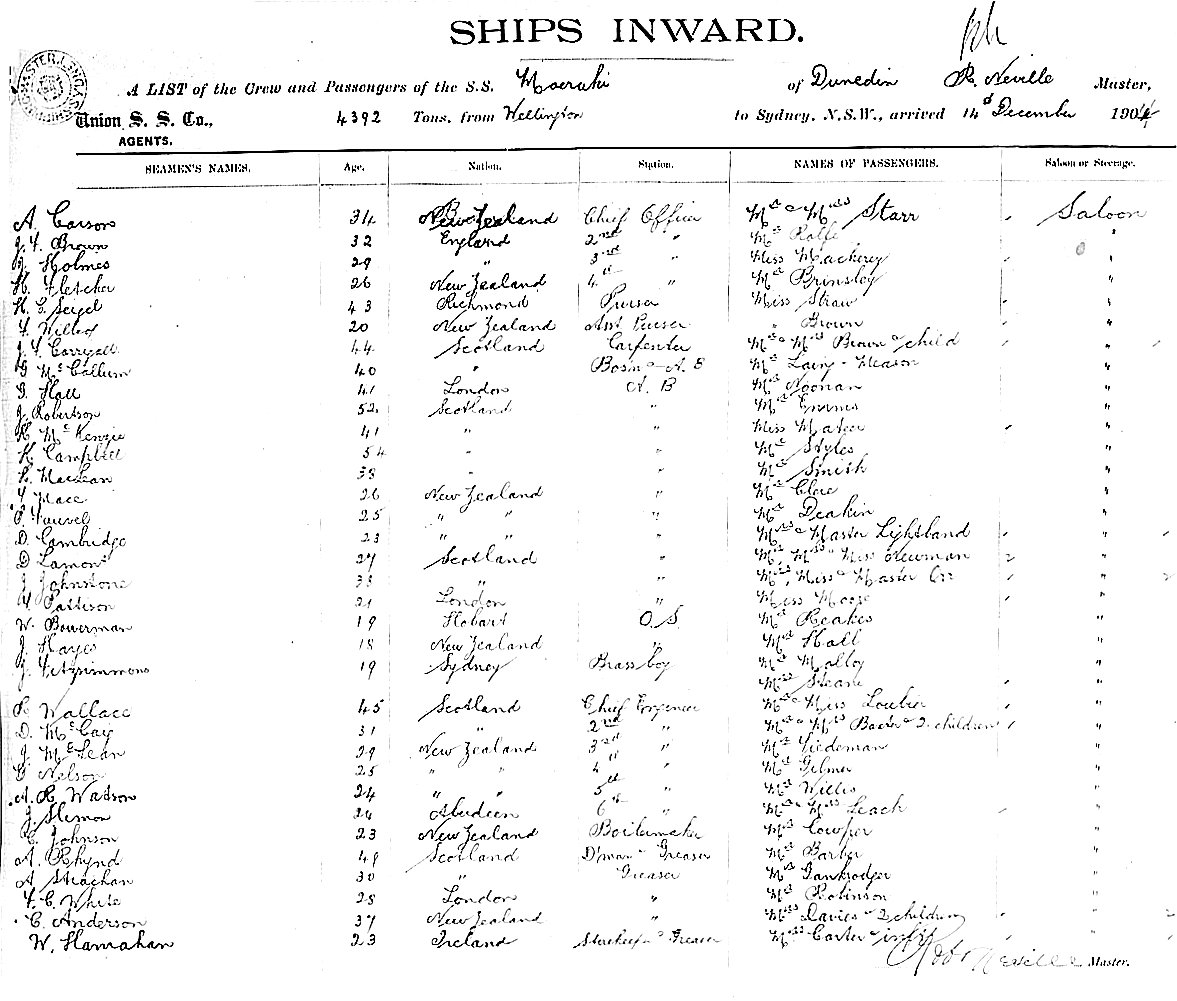 SHIPS INWARD.
A LIST of the Crew and Passengers of the S.S. Moeraki of Dunedin R. Neville Master,
Union S. S. Co., 4392 Tons, from Wellington to Sydney, N.S.W., arrived 14th December 1904
AGENTS.
SEAMEN'S NAMES. Age. Nation. Station. NAMES OF PASSENGERS. Saloon or Steerage.
A. Carson 34 New Zealand Chief Officer Mr & Mrs Starr Saloon
J. F. Brown 32 England 2nd " Mr Rolfe "
Holmes 29 " 3rd " Miss Mackerey "
H. Fletcher 26 New Zealand 4th " Mr Brinsley "
H. G. Seigel 43 Richmond Purser Miss Shaw "
20 New Zealand Asst Purser " Brown "
J. F. 44 Scotland Carpenter Mr & Mrs Brown & child "
G McCallum 40 " Bosn & A. B Mr Laing-Meason "
G. Hall 41 London A. B Mr Noonan "
J. Robertson 52 Scotland " Mr "
McKenzie 41 " " Miss Mateer "
K. Campbell 54 " " Mr Styles "
MacLean 38 " " Mr Smith "
F. Mace 26 New Zealand " Mr Clere "
Fauvel 25 " " " Mr Deakin "
D. Cambridge 23 " " " Mrs & Master Lightband "
D Lamont 27 Scotland " Mr, Mrs & Miss Newman "
J. Johnstone 38 " " Mrs, Miss & Master Orr "
Pattison 21 London " Miss Moore "
W. Bowerman 19 Hobart O.S. Mr Reakes "
J. Hayes 18 New Zealand " Mr Hall "
J. Fitzsimmons 19 Sydney Brassboy Mr Malloy "
Mrs Steane "
R Wallace 45 Scotland Chief Engineer Mrs & Miss Loubier "
D. McCay 31 " 2nd " Mr & Mrs Baxter & 2 children "
J. McLean 29 New Zealand 3rd " Mr Tiedeman "
G Nelson 25 " " 4th " Mr Gilmer "
A. R. Watson 24 " " 5th " Mr Willis "
J. Slemon 24 Aberdeen 6th " Mr & Mrs Leach "
C. Johnson 23 New Zealand Boilermaker Mr Cowper "
A. Rhynd 49 Scotland D'man & Greaser Mr Barber "
A Strachan 30 " Greaser Mr Tankrodger "
F. C. White 28 London " Mr Robinson "
C. Anderson 37 New Zealand " Mrs Davies & 2 children "
W. Hanrahan 23 Ireland Storekeeper & Greaser Mrs Carter & inft "
Robt Neville Master.